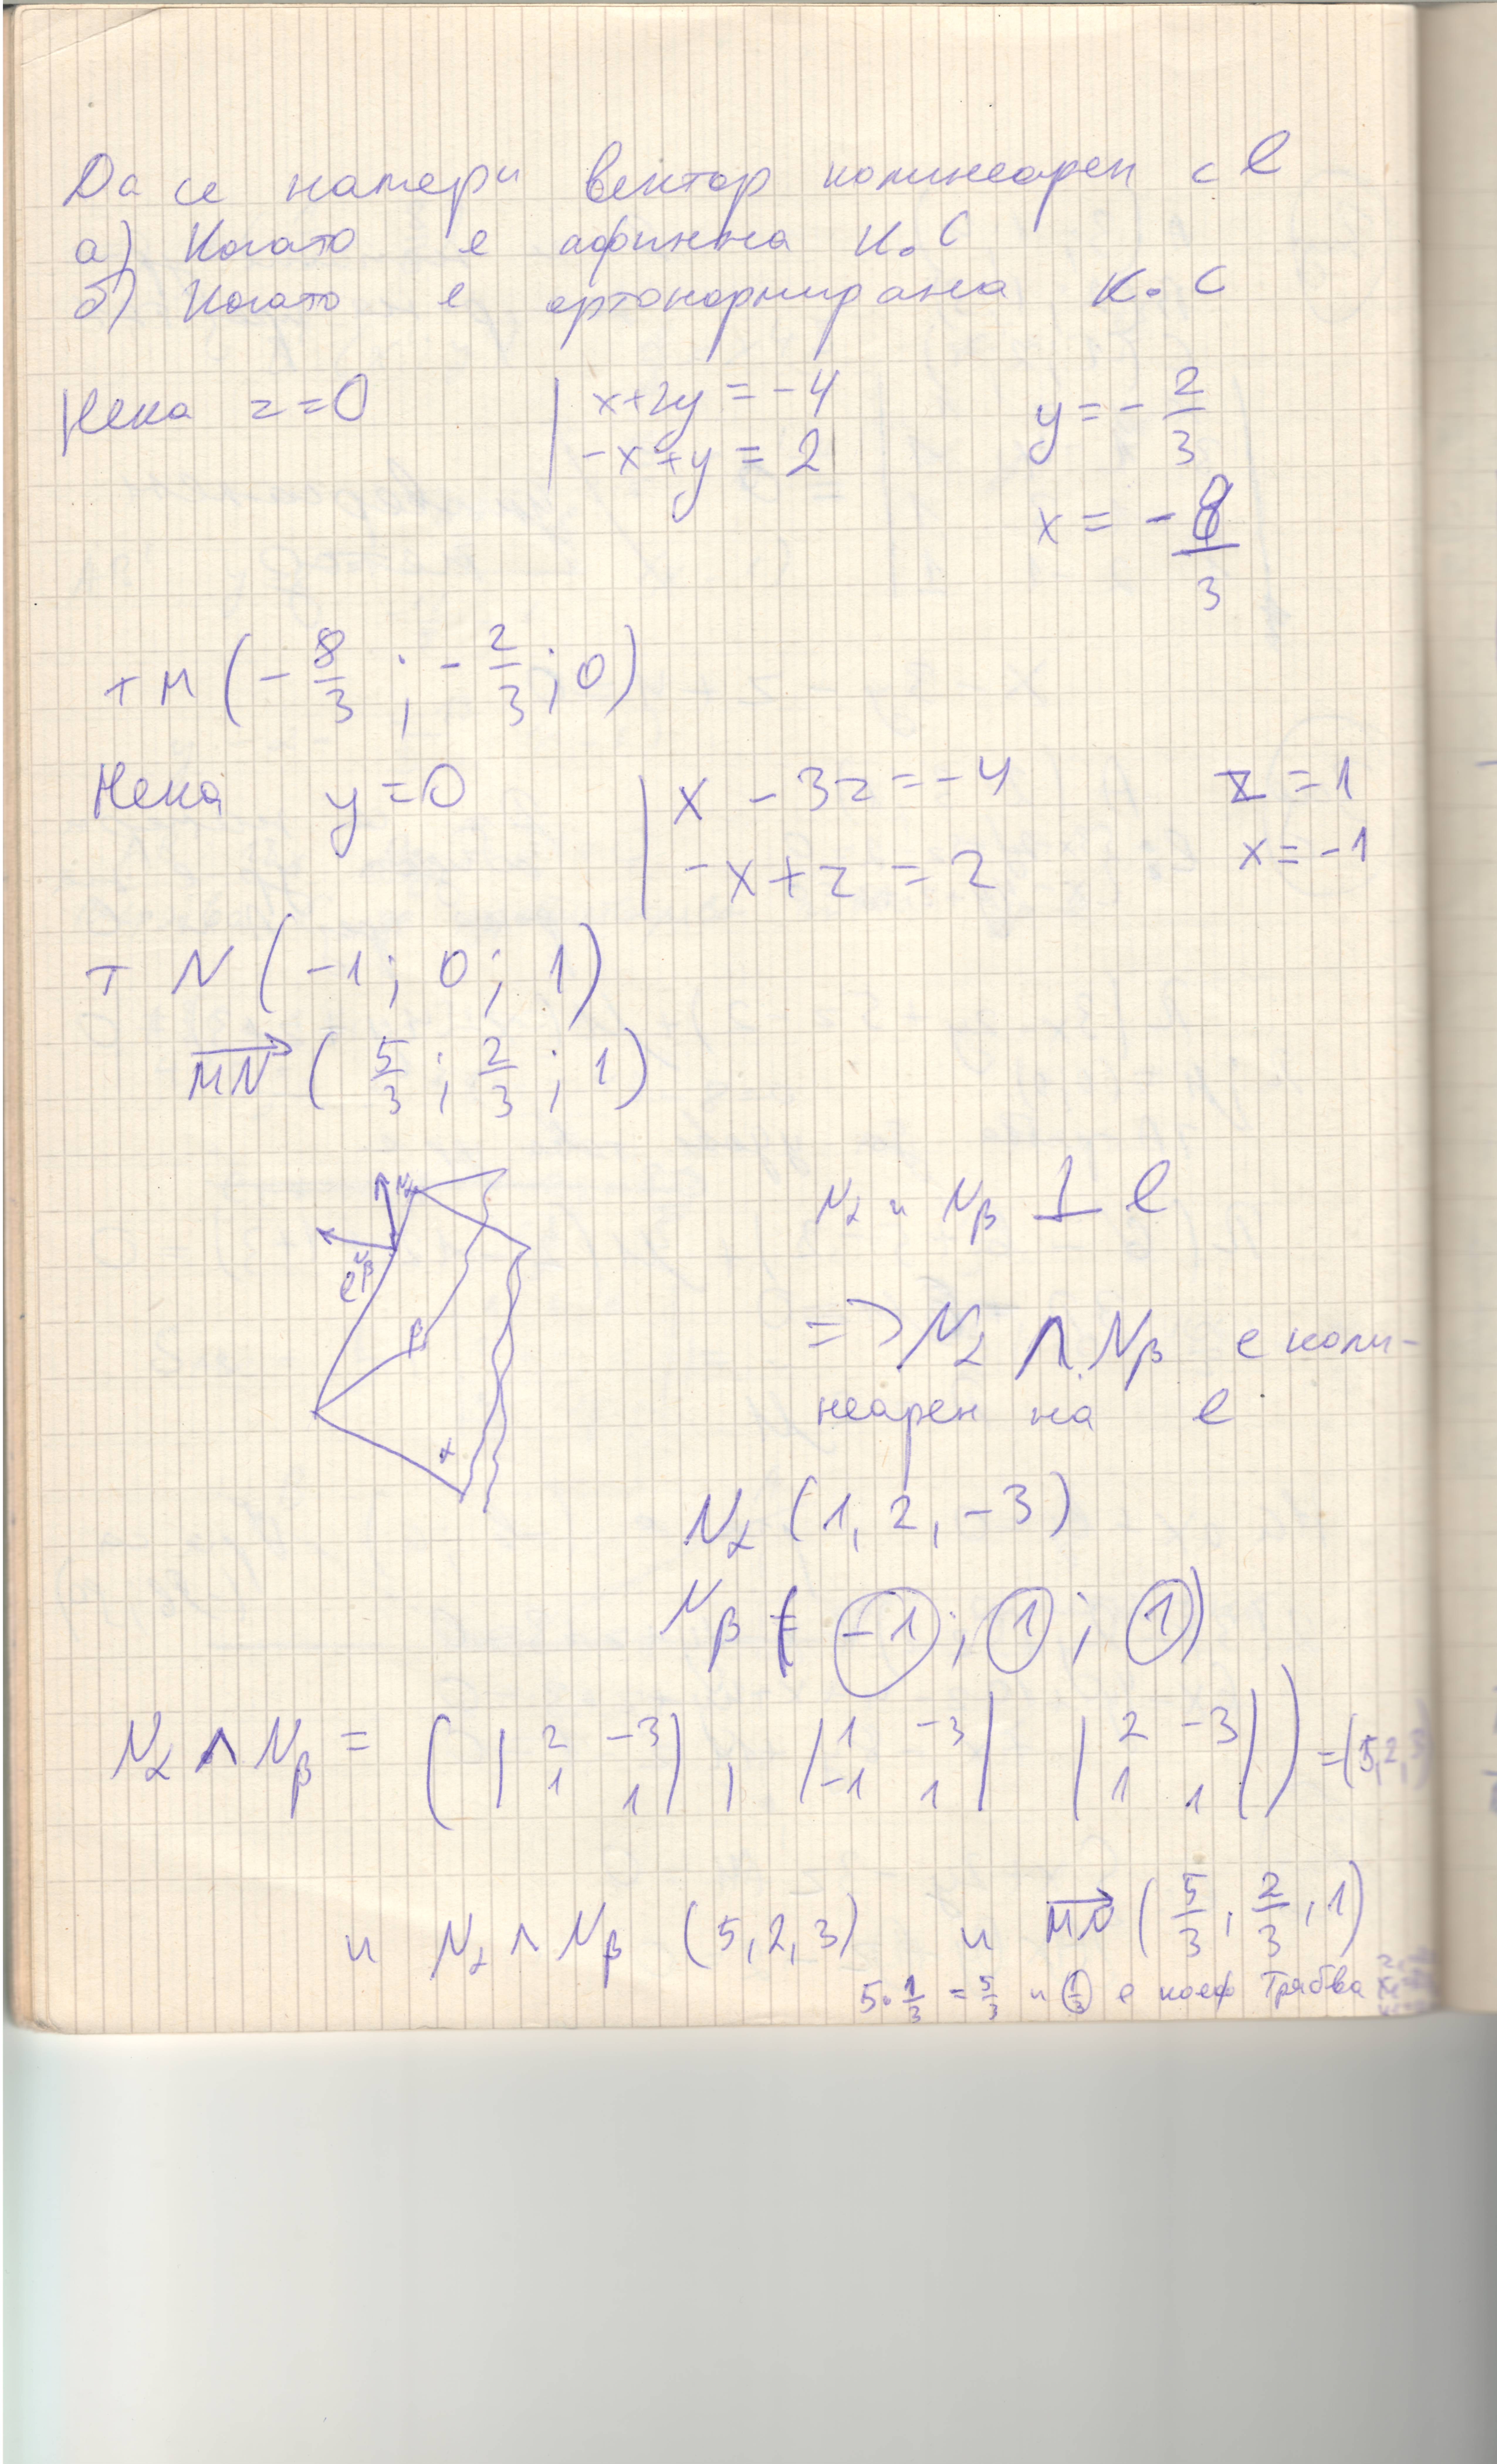 Да се намери вектор колинеарен с l
а) Когато е афинна К.С
б) Когато е ортонормирана К.С
Нека z=0 | x+2y = -4 y = - 2/3
-x+y = 2
x = - 8/3
т M (- 8/3 ; - 2/3 ; 0)
Нека y=0 | x - 3z = -4 z = 1
-x+z = 2 x = -1
т N (-1; 0; 1)
MN ( 5/3 ; 2/3 ; 1)
Nα
Nα и Nβ ⊥ l
Nβ
l
β
=> Nα ∧ Nβ е коли-
неарен на l
α
Nα (1, 2, -3)
Nβ ( -1; 1; 1)
Nα ∧ Nβ = ( |2 -3| , |1 -3| |2 -3| ) = (5,2,3
|1 1| |-1 1| |1 1|
и Nα ∧ Nβ (5,2,3) и MN ( 5/3 , 2/3 , 1)
5. 1/3 = 5/3 и 1/3 е коеф Трябва